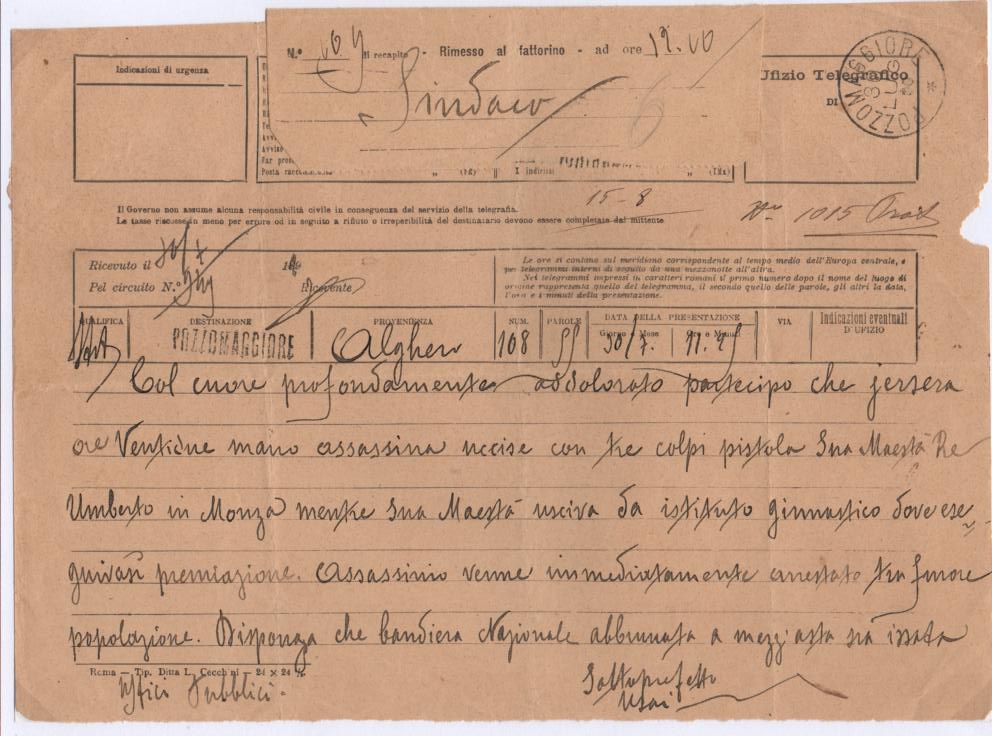 N.° 109 di recapito - Rimesso al fattorino - ad ore 12.00
Sindaco
Indicazioni di urgenza
Ufizio Telegrafico
DI
POZZOMAGGIORE
30 LUG
15-8
N° 1015
Il Governo non assume alcuna responsabilità civile in conseguenza del servizio della telegrafia.
Le tasse riscosse in meno per errore od in seguito a rifiuto o irreperibilità del destinatario devono essere completate dal mittente.
Ricevuto il 30/7
Pel circuito N.° Ricevente
Le ore si contano sul meridiano corrispondente al tempo medio dell'Europa centrale, e
pei telegrammi interni di seguito da una mezzanotte all'altra.
Nei telegrammi impressi in caratteri romani il primo numero dopo il nome del luogo di
origine rappresenta quello del telegramma, il secondo quello delle parole, gli altri la data,
l'ora e i minuti della presentazione.
QUALIFICA DESTINAZIONE PROVENIENZA NUM. PAROLE DATA DELLA PRESENTAZIONE VIA Indicazioni eventuali
Giorno e Mese Ore e Minuti D'UFIZIO
POZZOMAGGIORE Alghero 108 55 30/7.
Col cuore profondamente addolorato partecipo che jersera
ore Ventidue mano assassina uccise con tre colpi pistola Sua Maestà Re
Umberto in Monza mentre Sua Maestà usciva da istituto ginnastico dove ese-
guivasi premiazione. Assassinio venne immediatamente arrestato tra furore
popolazione. Disponga che bandiera Nazionale abbrunata a mezz'asta sia issata
Roma — Tip. Ditta L. Cecchini — 24 × 24
Uffici Pubblici.
Sottoprefetto
Usai